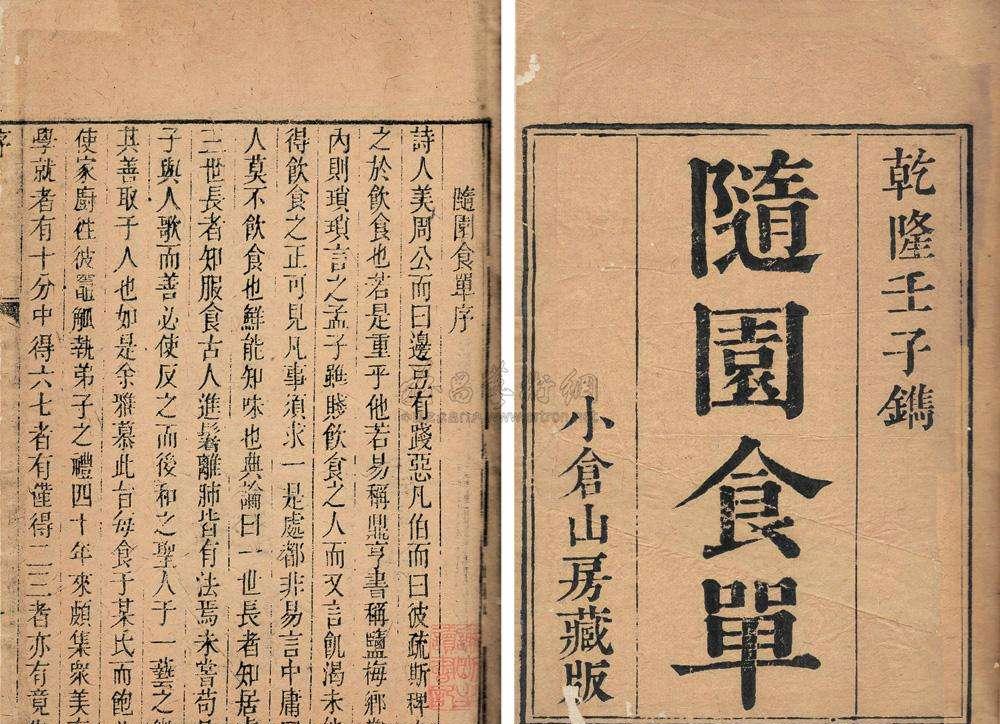 乾隆壬子鐫
隨園食單
小倉山房藏版
隨園食單序
詩人美周公而曰邊豆有踐惡凡伯而曰彼疏斯稗
之於飲食也若是重乎他若易稱鼎亨書稱鹽梅鄉
內則瑣瑣言之孟子雖賤飲食之人而又言飢渴未
得飲食之正可見凡事須求一是處都非易言中庸
人莫不飲食也鮮能知味也典論曰一世長者知居
三世長者知服食古人進鬐離肺皆有法焉未嘗苟
子與人歌而善必使反之而後和之聖人于一藝之
其善取于人也如是余雅慕此旨每食于某氏而飽
使家廚往彼竈觚執弟子之禮四十年來頗集衆美
學就者有十分中得六七者有僅得二三者亦有竟